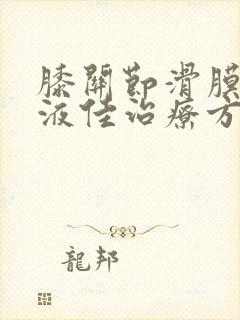 膝關節滑膜
液佳治療方
龍邦